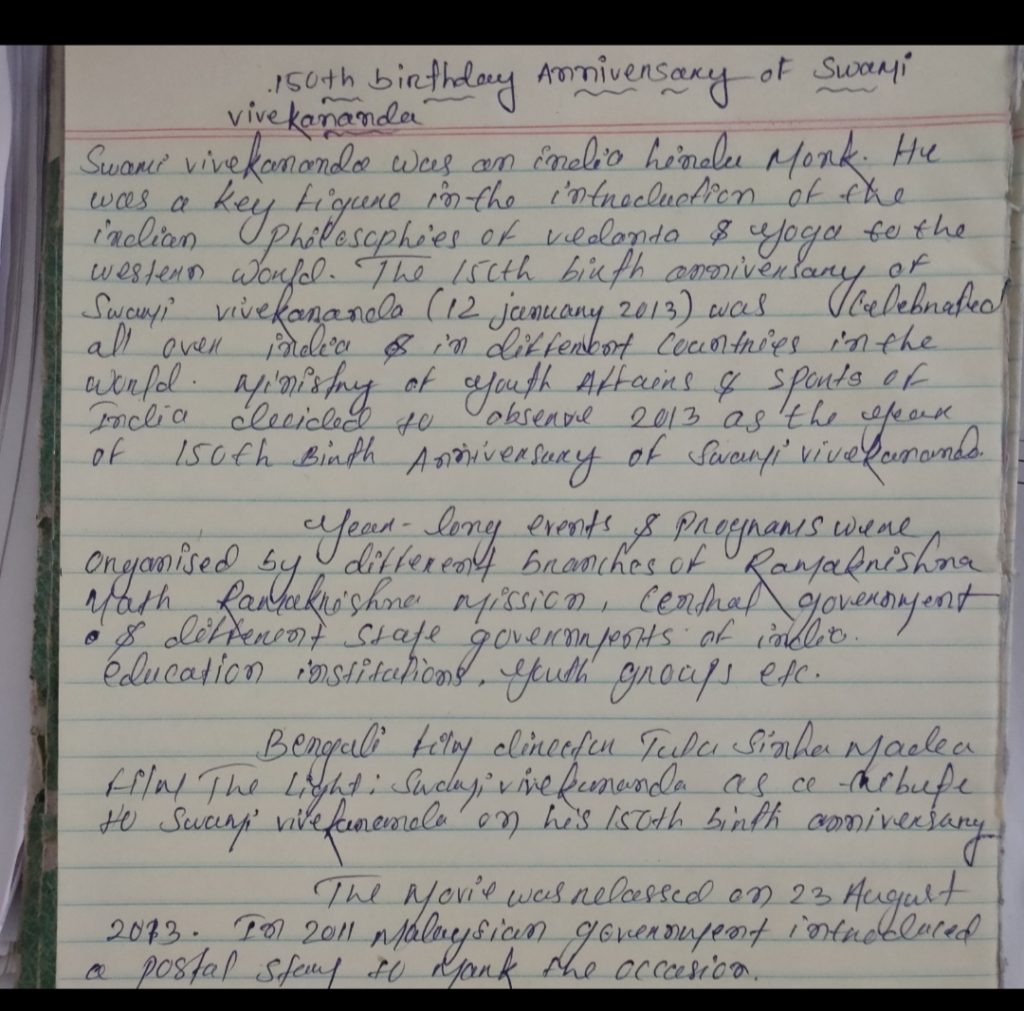 150th birthday Anniversary of Swami
vivekananda
Swami vivekananda was an india hindu Monk. He
was a key figure in the introduction of the
indian Philosophies of vedanta & yoga to the
western world. The 150th birth anniversary of
Swami vivekananda (12 january 2013) was Celebrated
all over india & in different Countries in the
world. Ministry of youth Affairs & sports of
India decided to observe 2013 as the year
of 150th Birth Anniversary of Swami vivekananda.
year-long events & programs were
organised by different branches of Ramakrishna
Math Ramakrishna Mission, Central government
& different state governments of india.
education institutions, youth groups etc.
Bengali film director Tutu Sinha Madea
film The Light: Swami vivekananda as a tribute
to Swami vivekananda on his 150th birth anniversary
The Movie was relassed on 23 August
2013. In 2011 Malaysian government introduced
a postal stamp to Mark the occasion.